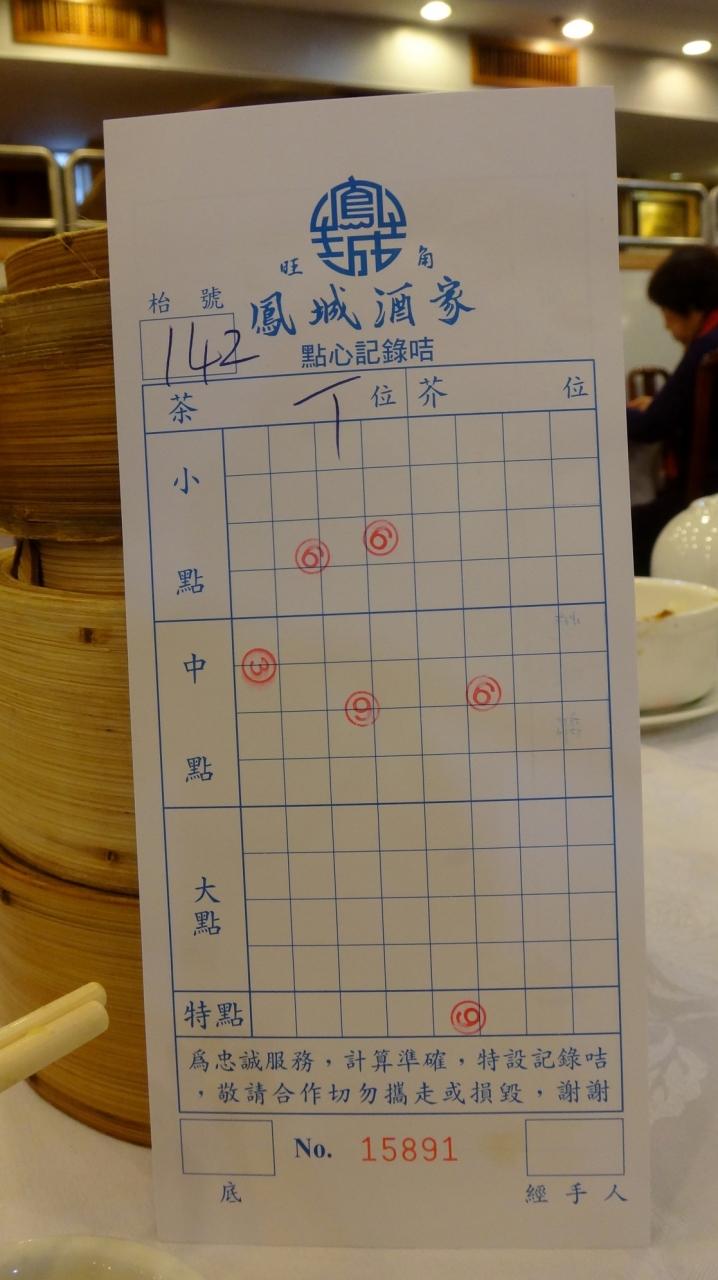 鳳城
旺 角
枱 號
鳳城酒家
142
點心記錄咭
茶 丅 位 芥 位
小點
6 6
中點
3 9 6
大點
特點 9
爲忠誠服務，計算準確，特設記錄咭
，敬請合作切勿攜走或損毀，謝謝
No. 15891
底 經手人